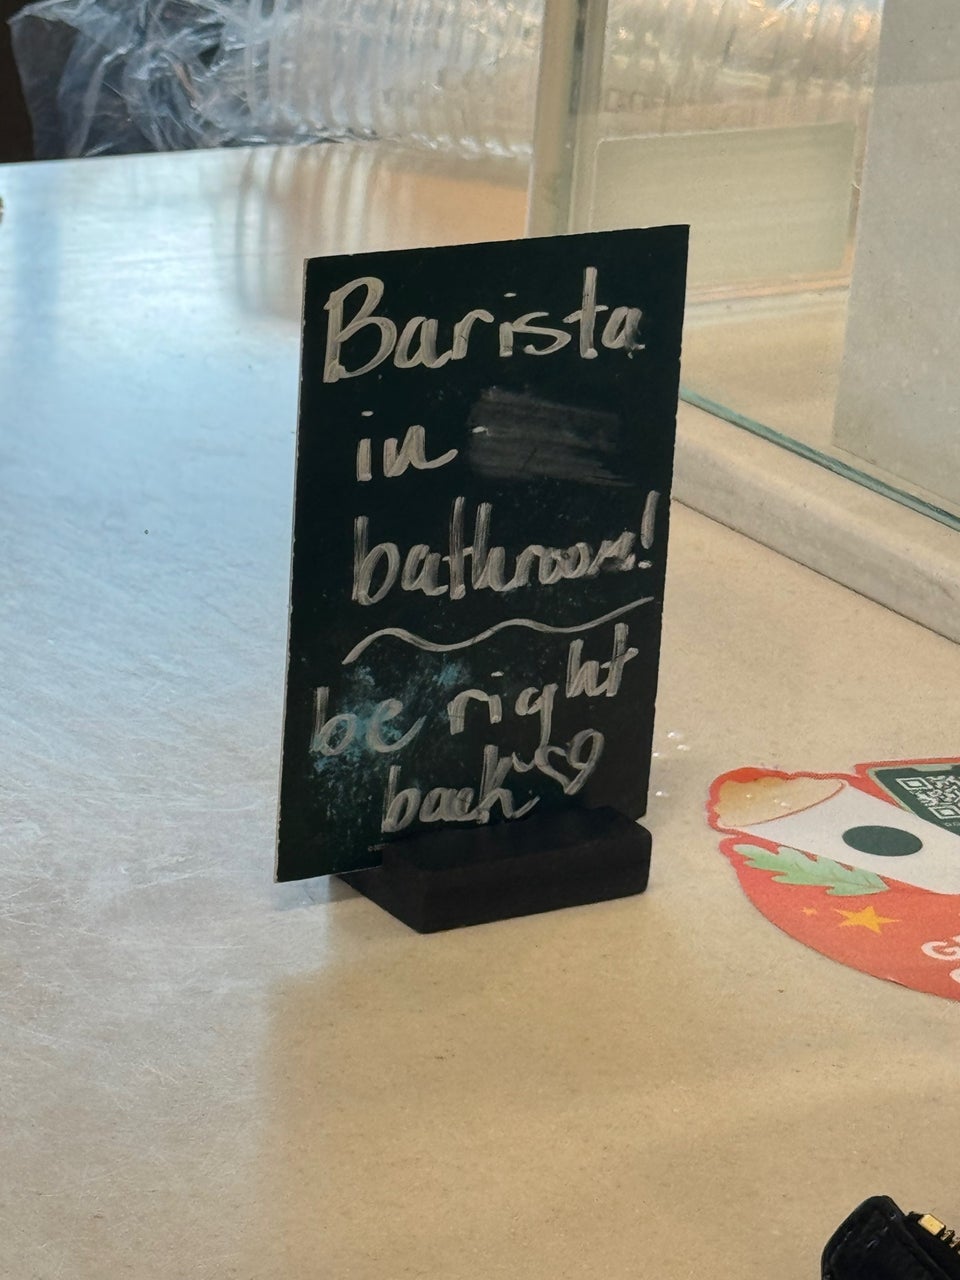 Barista
in
bathroom!
be right
back